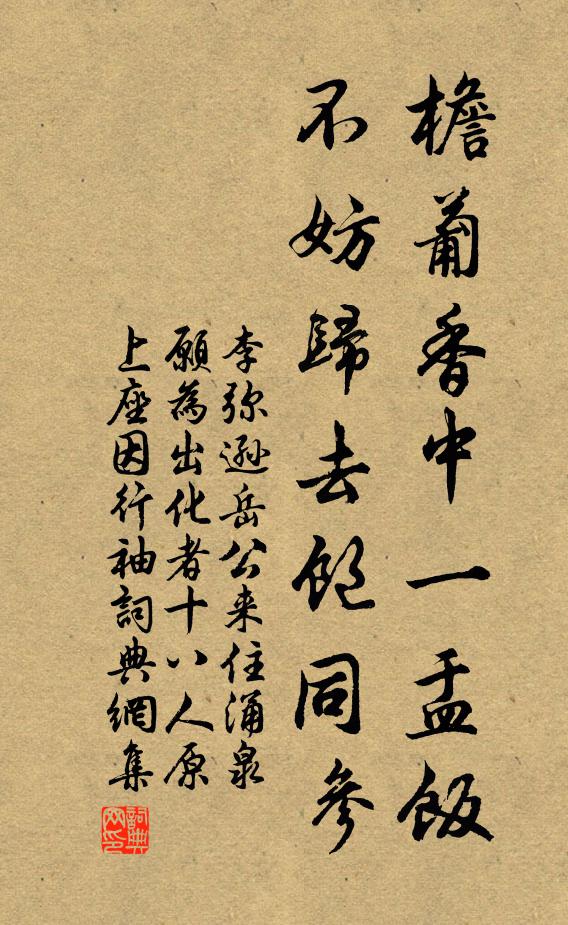 檐蔔香中一盂飯
不妨歸去飽同參
李弥遜岳公来住涌泉
願為出化者十八人原
上座因行袖詞典網集
詞典網印